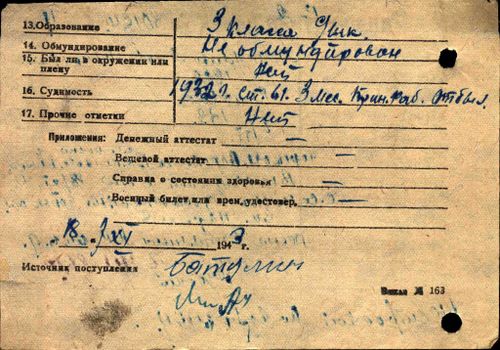 13. Образование 3 класса
14. Обмундирование Не обмундирован
15. Был ли в окружении или
плену Нет
16. Судимость 1932 г. ст. 61. 3 мес. отбыл.
17. Прочие отметки Нет
Приложения: Денежный аттестат —
Вещевой аттестат —
Справка о состоянии здоровья —
Военный билет или врем. удостовер. —
18. XI 1943 г.
Источник поступления
Заказ № 163